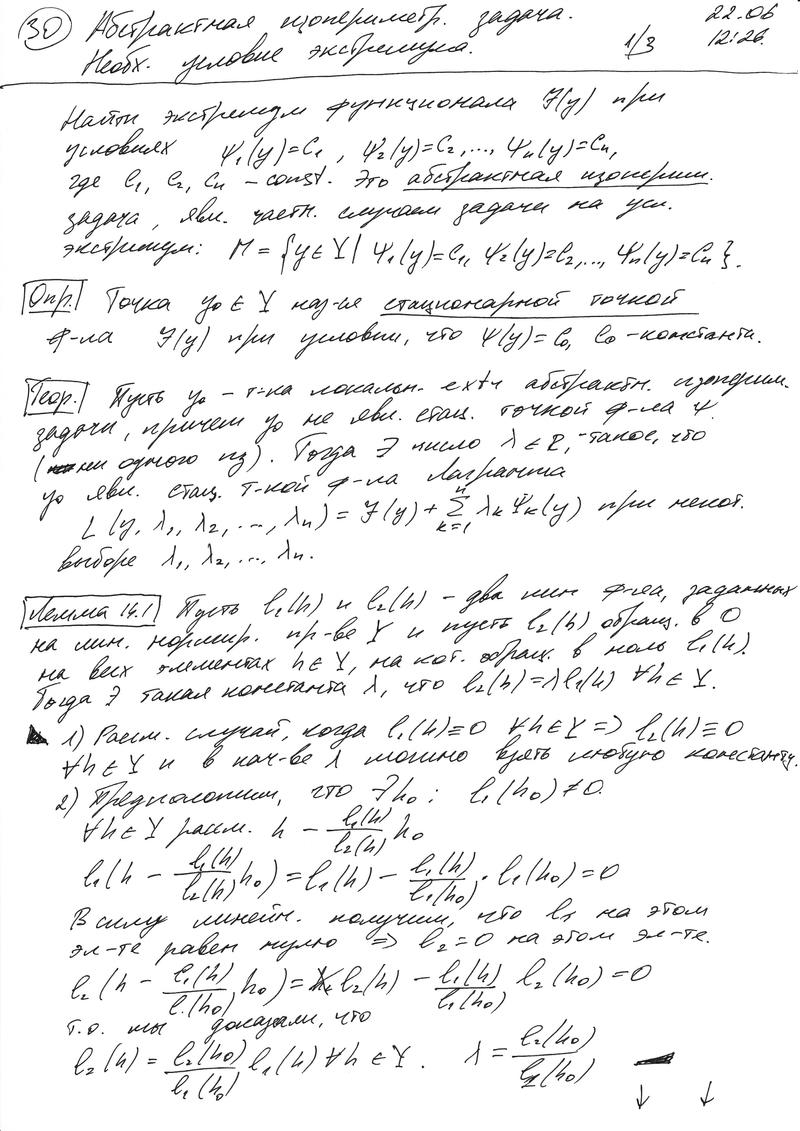 30 Абстрактная изопериметр. задача. 22.06
Необх. условие экстремума. 1/3 12:26.
Найти экстремум функционала J(y) при
условиях Ψ₁(y)=C₁, Ψ₂(y)=C₂,..., Ψn(y)=Cn,
где C₁, C₂, Cn – const. Это абстрактная изоперим.
задача, явл. частн. случаем задачи на усл.
экстремум: M = {y∈Y | Ψ₁(y)=C₁, Ψ₂(y)=C₂,..., Ψn(y)=Cn}.
Опр. Точка y₀∈Y наз-ся стационарной точкой
ф-ла J(y) при условии, что Ψ(y)=C₀, C₀ – константа.
Теор. Пусть y₀ – т-ка локальн. extr абстрактн. изоперим.
задачи, причем y₀ не явл. стац. точкой ф-ла Ψ.
(ни одного из). Тогда ∃ число λ∈R, такое, что
y₀ явл. стац. т-кой ф-ла Лагранжа
L(y, λ₁, λ₂, ..., λn) = J(y) + ∑ₖ₌₁ⁿ λₖΨₖ(y) при некот.
выборе λ₁, λ₂, ... λn.
Лемма 14.1 Пусть l₁(h) и l₂(h) – два лин ф-ла, заданных
на лин. нормир. пр-ве Y и пусть l₂(h) обращ. в 0
на всех элементах h∈Y, на кот. обращ. в ноль l₁(h).
Тогда ∃ такая константа λ, что l₂(h)=λl₁(h) ∀h∈Y.
1) Рассм. случай, когда l₁(h)≡0 ∀h∈Y => l₂(h)≡0
∀h∈Y и в кач-ве λ можно взять любую константу.
2) Предположим, что ∃h₀: l₁(h₀)≠0.
∀h∈Y рассм. h – l₁(h)/l₂(h) h₀
l₁(h – l₁(h)/l₂(h) h₀) = l₁(h) – l₁(h)/l₁(h₀) · l₁(h₀) = 0
В силу линейн. получим, что l₁ на этом
эл-те равен нулю => l₂=0 на этом эл-те.
l₂(h – l₁(h)/l₁(h₀) h₀) = l₂(h) – l₁(h)/l₁(h₀) l₂(h₀) = 0
т.о. мы доказали, что
l₂(h) = l₂(h₀)/l₁(h₀) l₁(h) ∀h∈Y. λ = l₂(h₀)/l₁(h₀)
↓ ↓